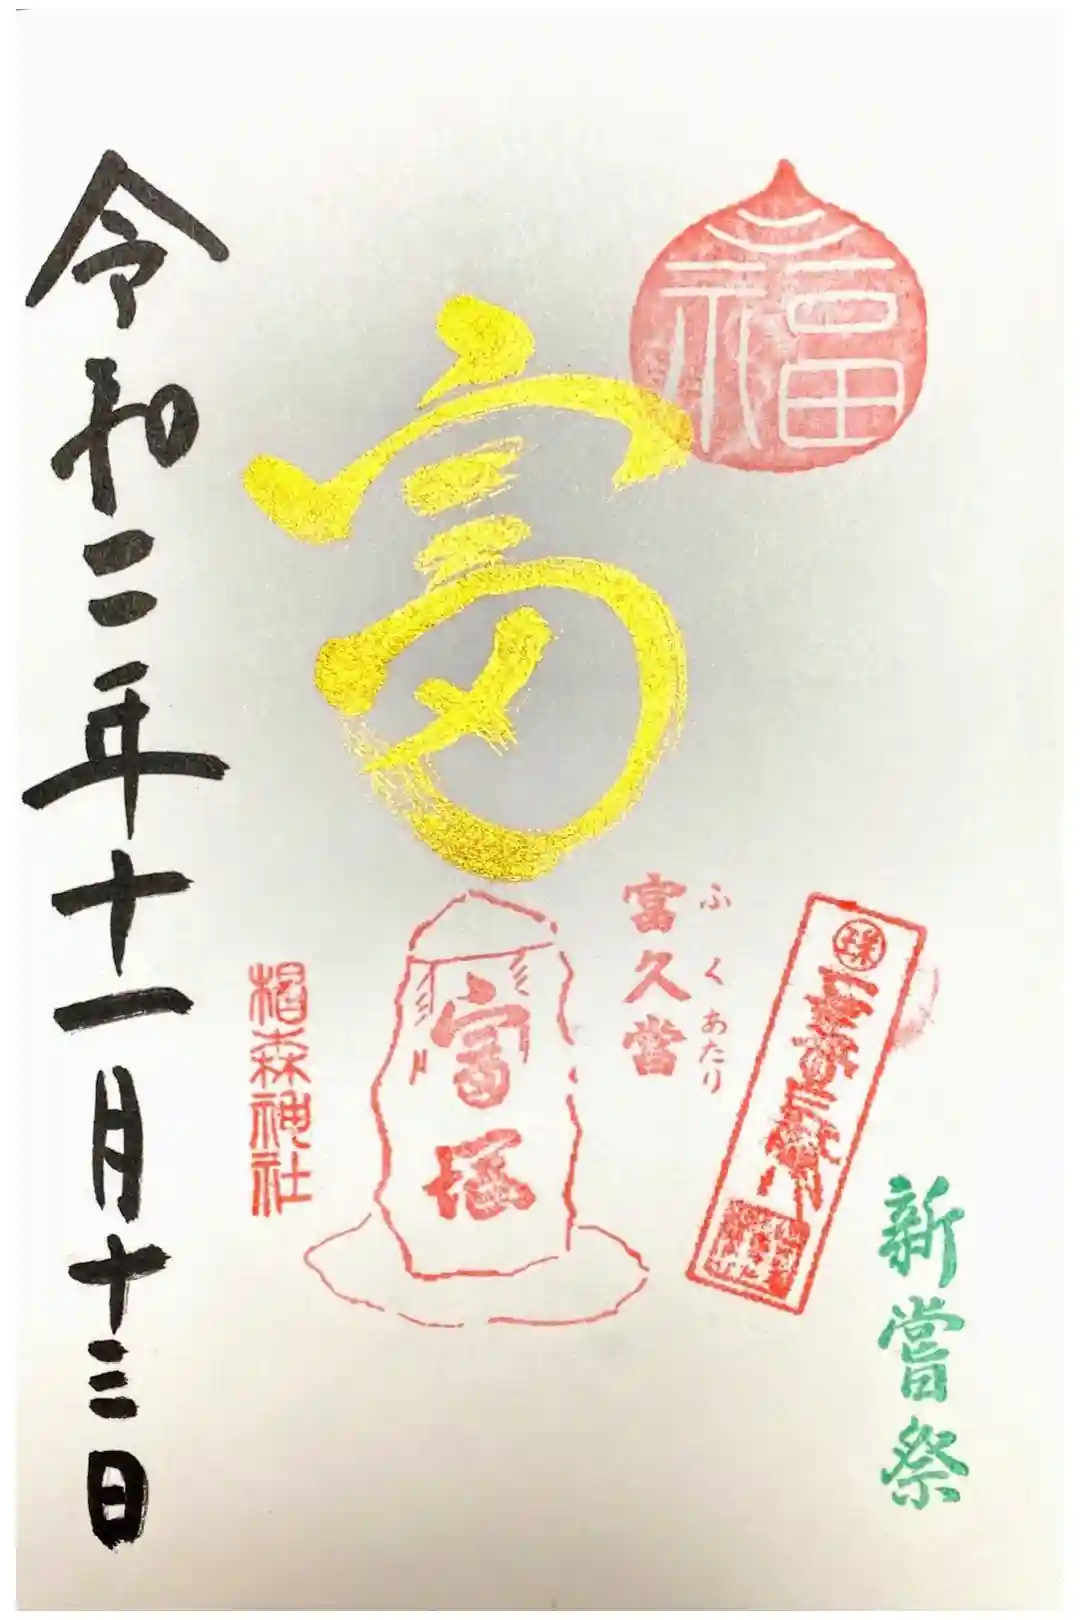 福
新嘗祭
富
富久當
ふくあたり
富塚
椙森神社
令和二年十一月十三日